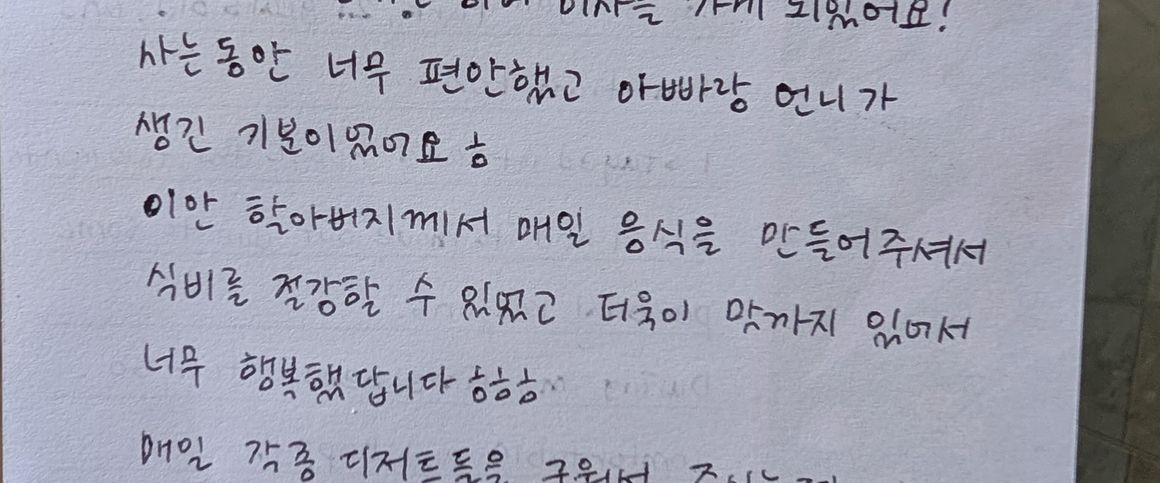 이사를 가게 되었어요!
사는동안 너무 편안했고 아빠랑 언니가
생긴 기분이었어요 ㅎ
이안 할아버지께서 매일 음식을 만들어주셔서
식비를 절강할 수 있었고 더욱이 맛까지 있어서
너무 행복했답니다 ㅎㅎㅎ
매일 각종 디저트들을 구워서